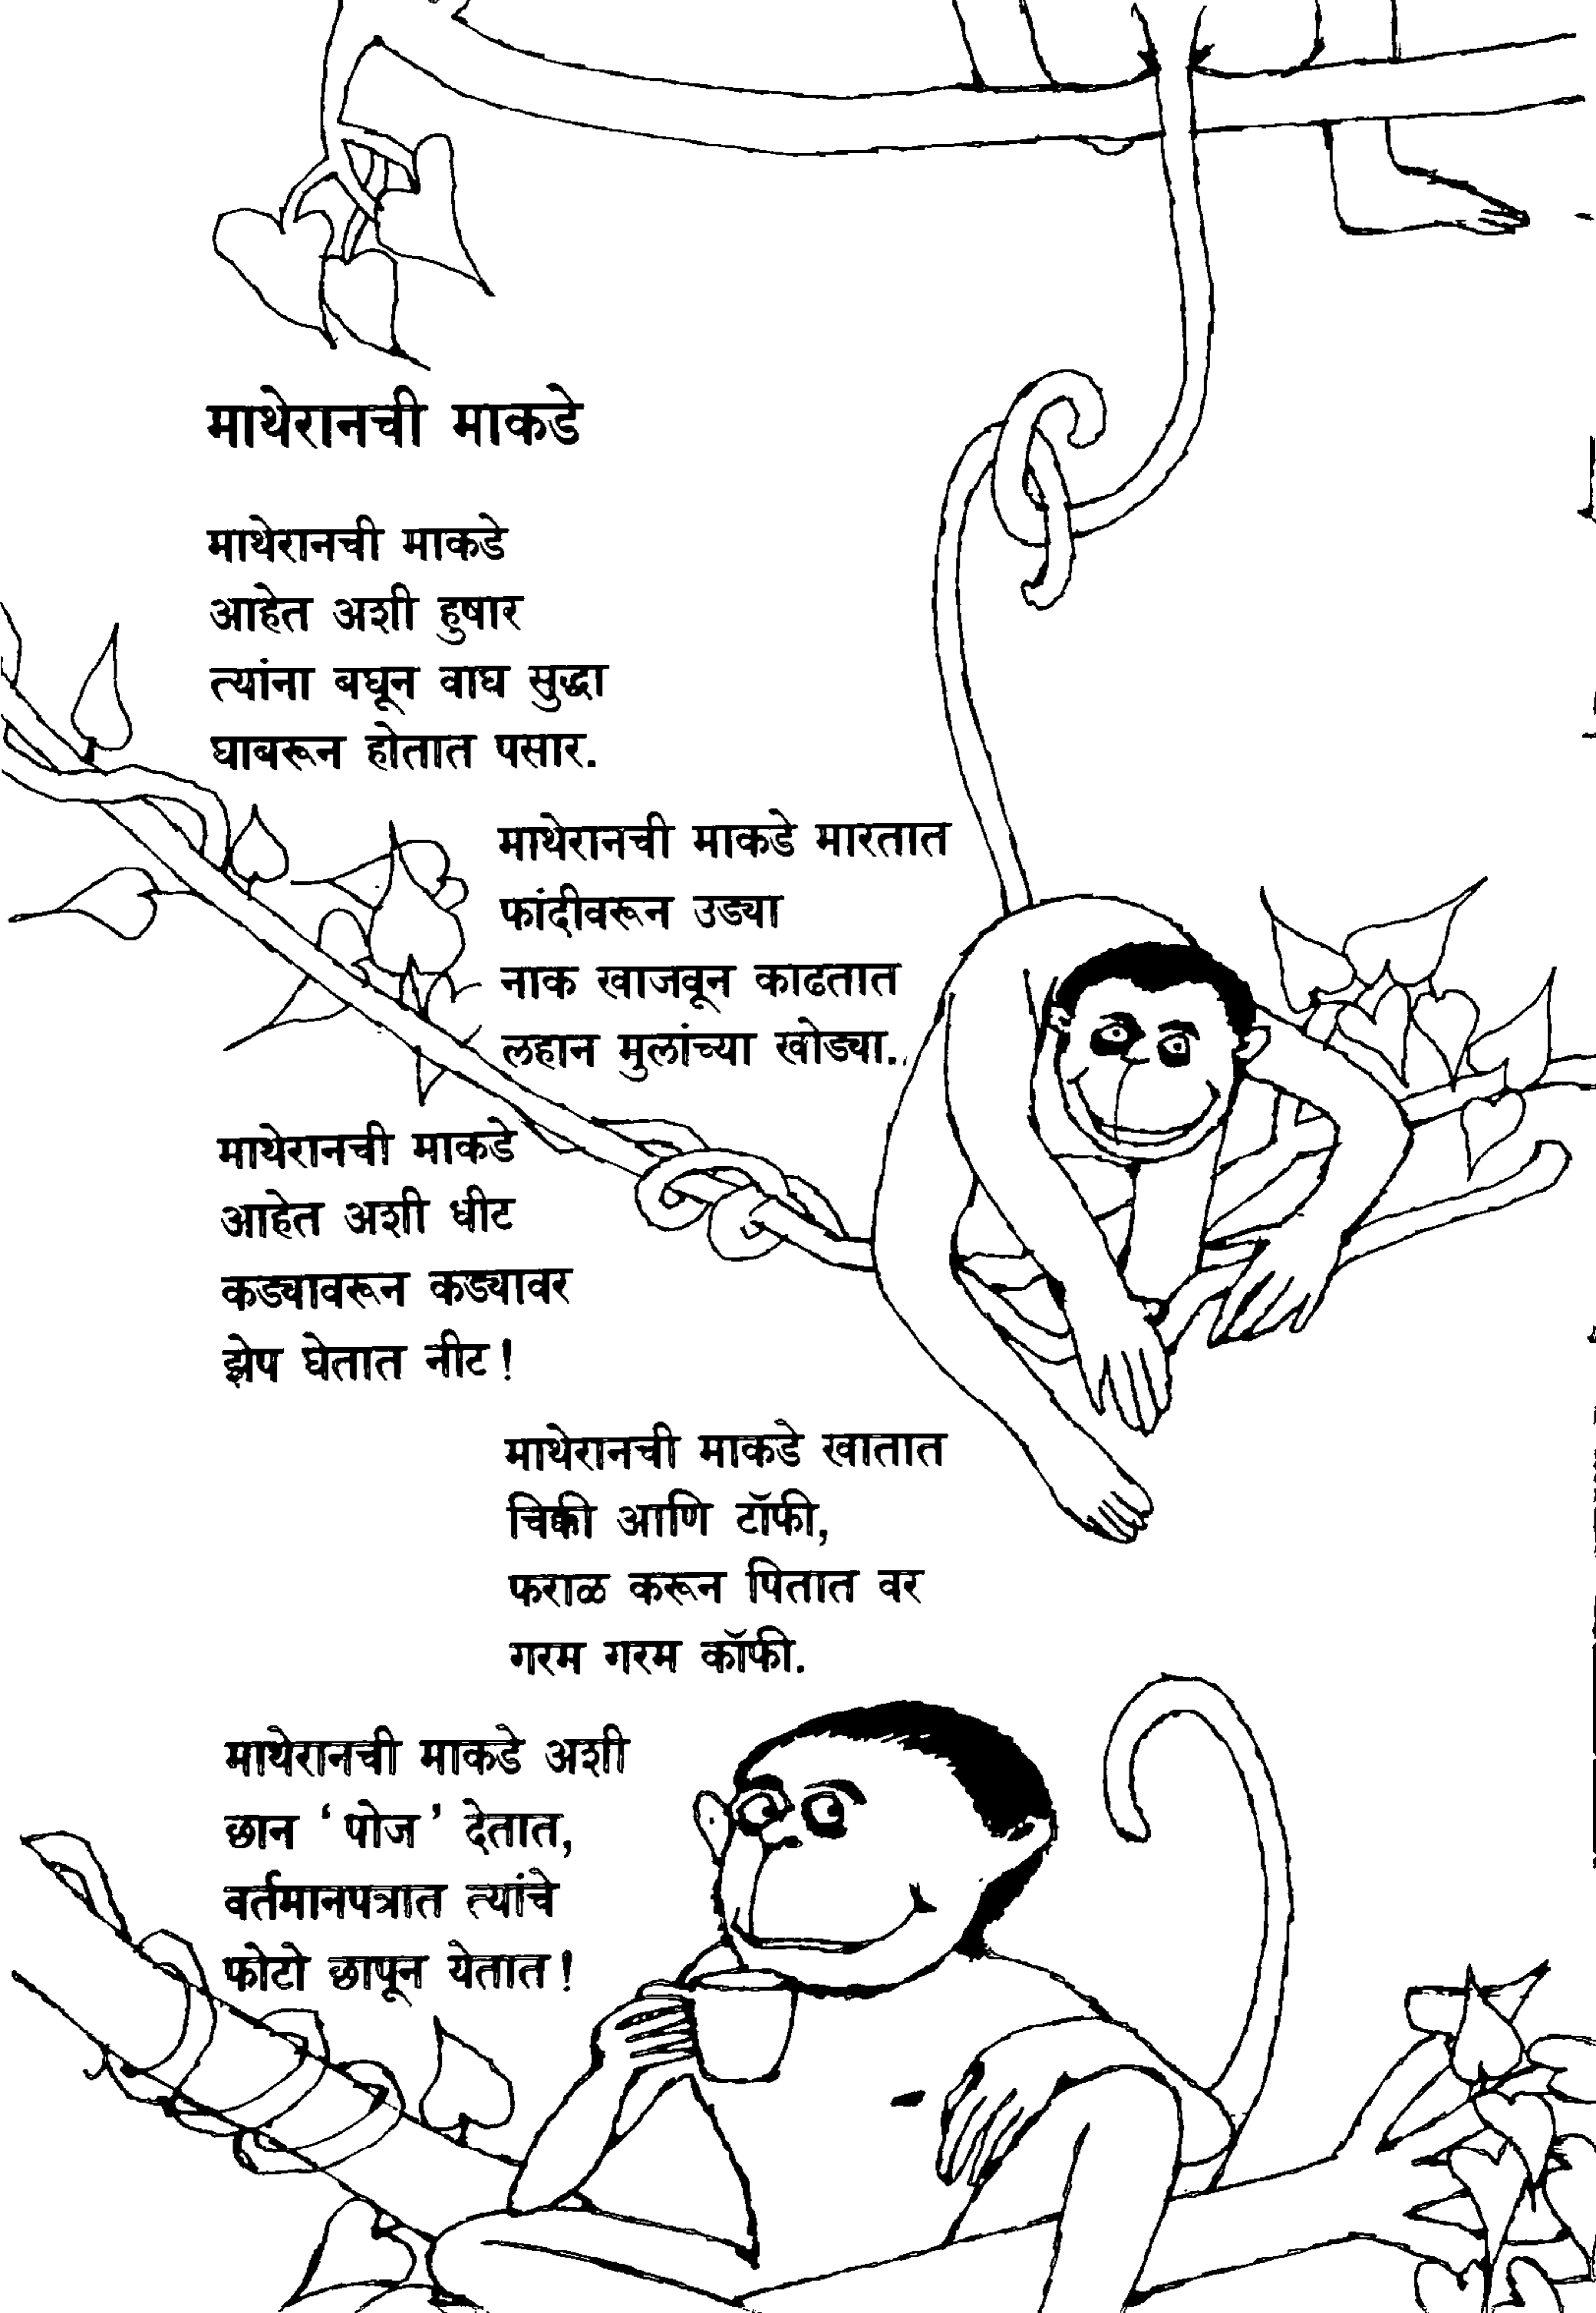 माथेरानची माकडे
माथेरानची माकडे
आहेत अशी हुषार
त्यांना बघून वाघ सुद्धा
घाबरून होतात पसार.
माथेरानची माकडे मारतात
फांदीवरून उड्या
नाक खाजवून काढतात
लहान मुलांच्या खोड्या..
माथेरानची माकडे
आहेत अशी धीट
कड्यावरून कड्यावर
झेप घेतात नीट!
माथेरानची माकडे खातात
चिक्की आणि टॉफी,
फराळ करून पितात वर
गरम गरम कॉफी.
माथेरानची माकडे अशी
छान ‘पोज’ देतात,
वर्तमानपत्रात त्यांचे
फोटो छापून येतात!